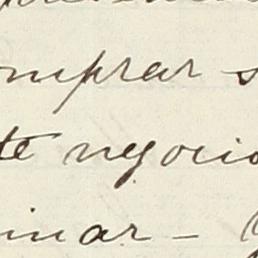 omprar s
te negocio
inar —